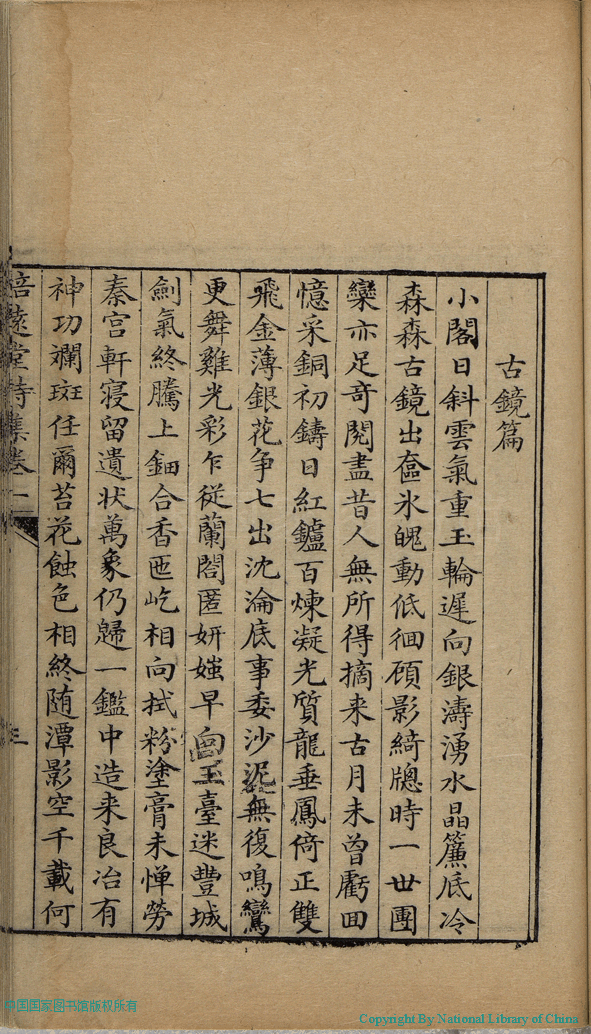 古鏡篇
小閣日斜雲氣重玉輪遲向銀濤湧水晶簾底冷
森森古鏡出奩氷魄動低徊頋影綺牕時一世團
欒亦足奇閱盡昔人無所得摘来古月未曾虧囬
憶采銅初鑄日紅鑪百煉凝光質龍垂鳳倚正雙
飛金薄銀花争七出沈淪底事委沙泥無復鳴鸞
更舞雞光彩乍從蘭閤匿妍媸早向玉臺迷豐城
劍氣終騰上鈿合香匜屹相向拭粉塗膏未憚勞
秦宫軒寝留遺状萬象仍歸一鑑中造来良冶有
神功斕斑任爾苔花蝕色相終随潭影空千載何
培遠堂詩集卷一
三
中国国家图书馆版权所有
Copyright By National Library of China